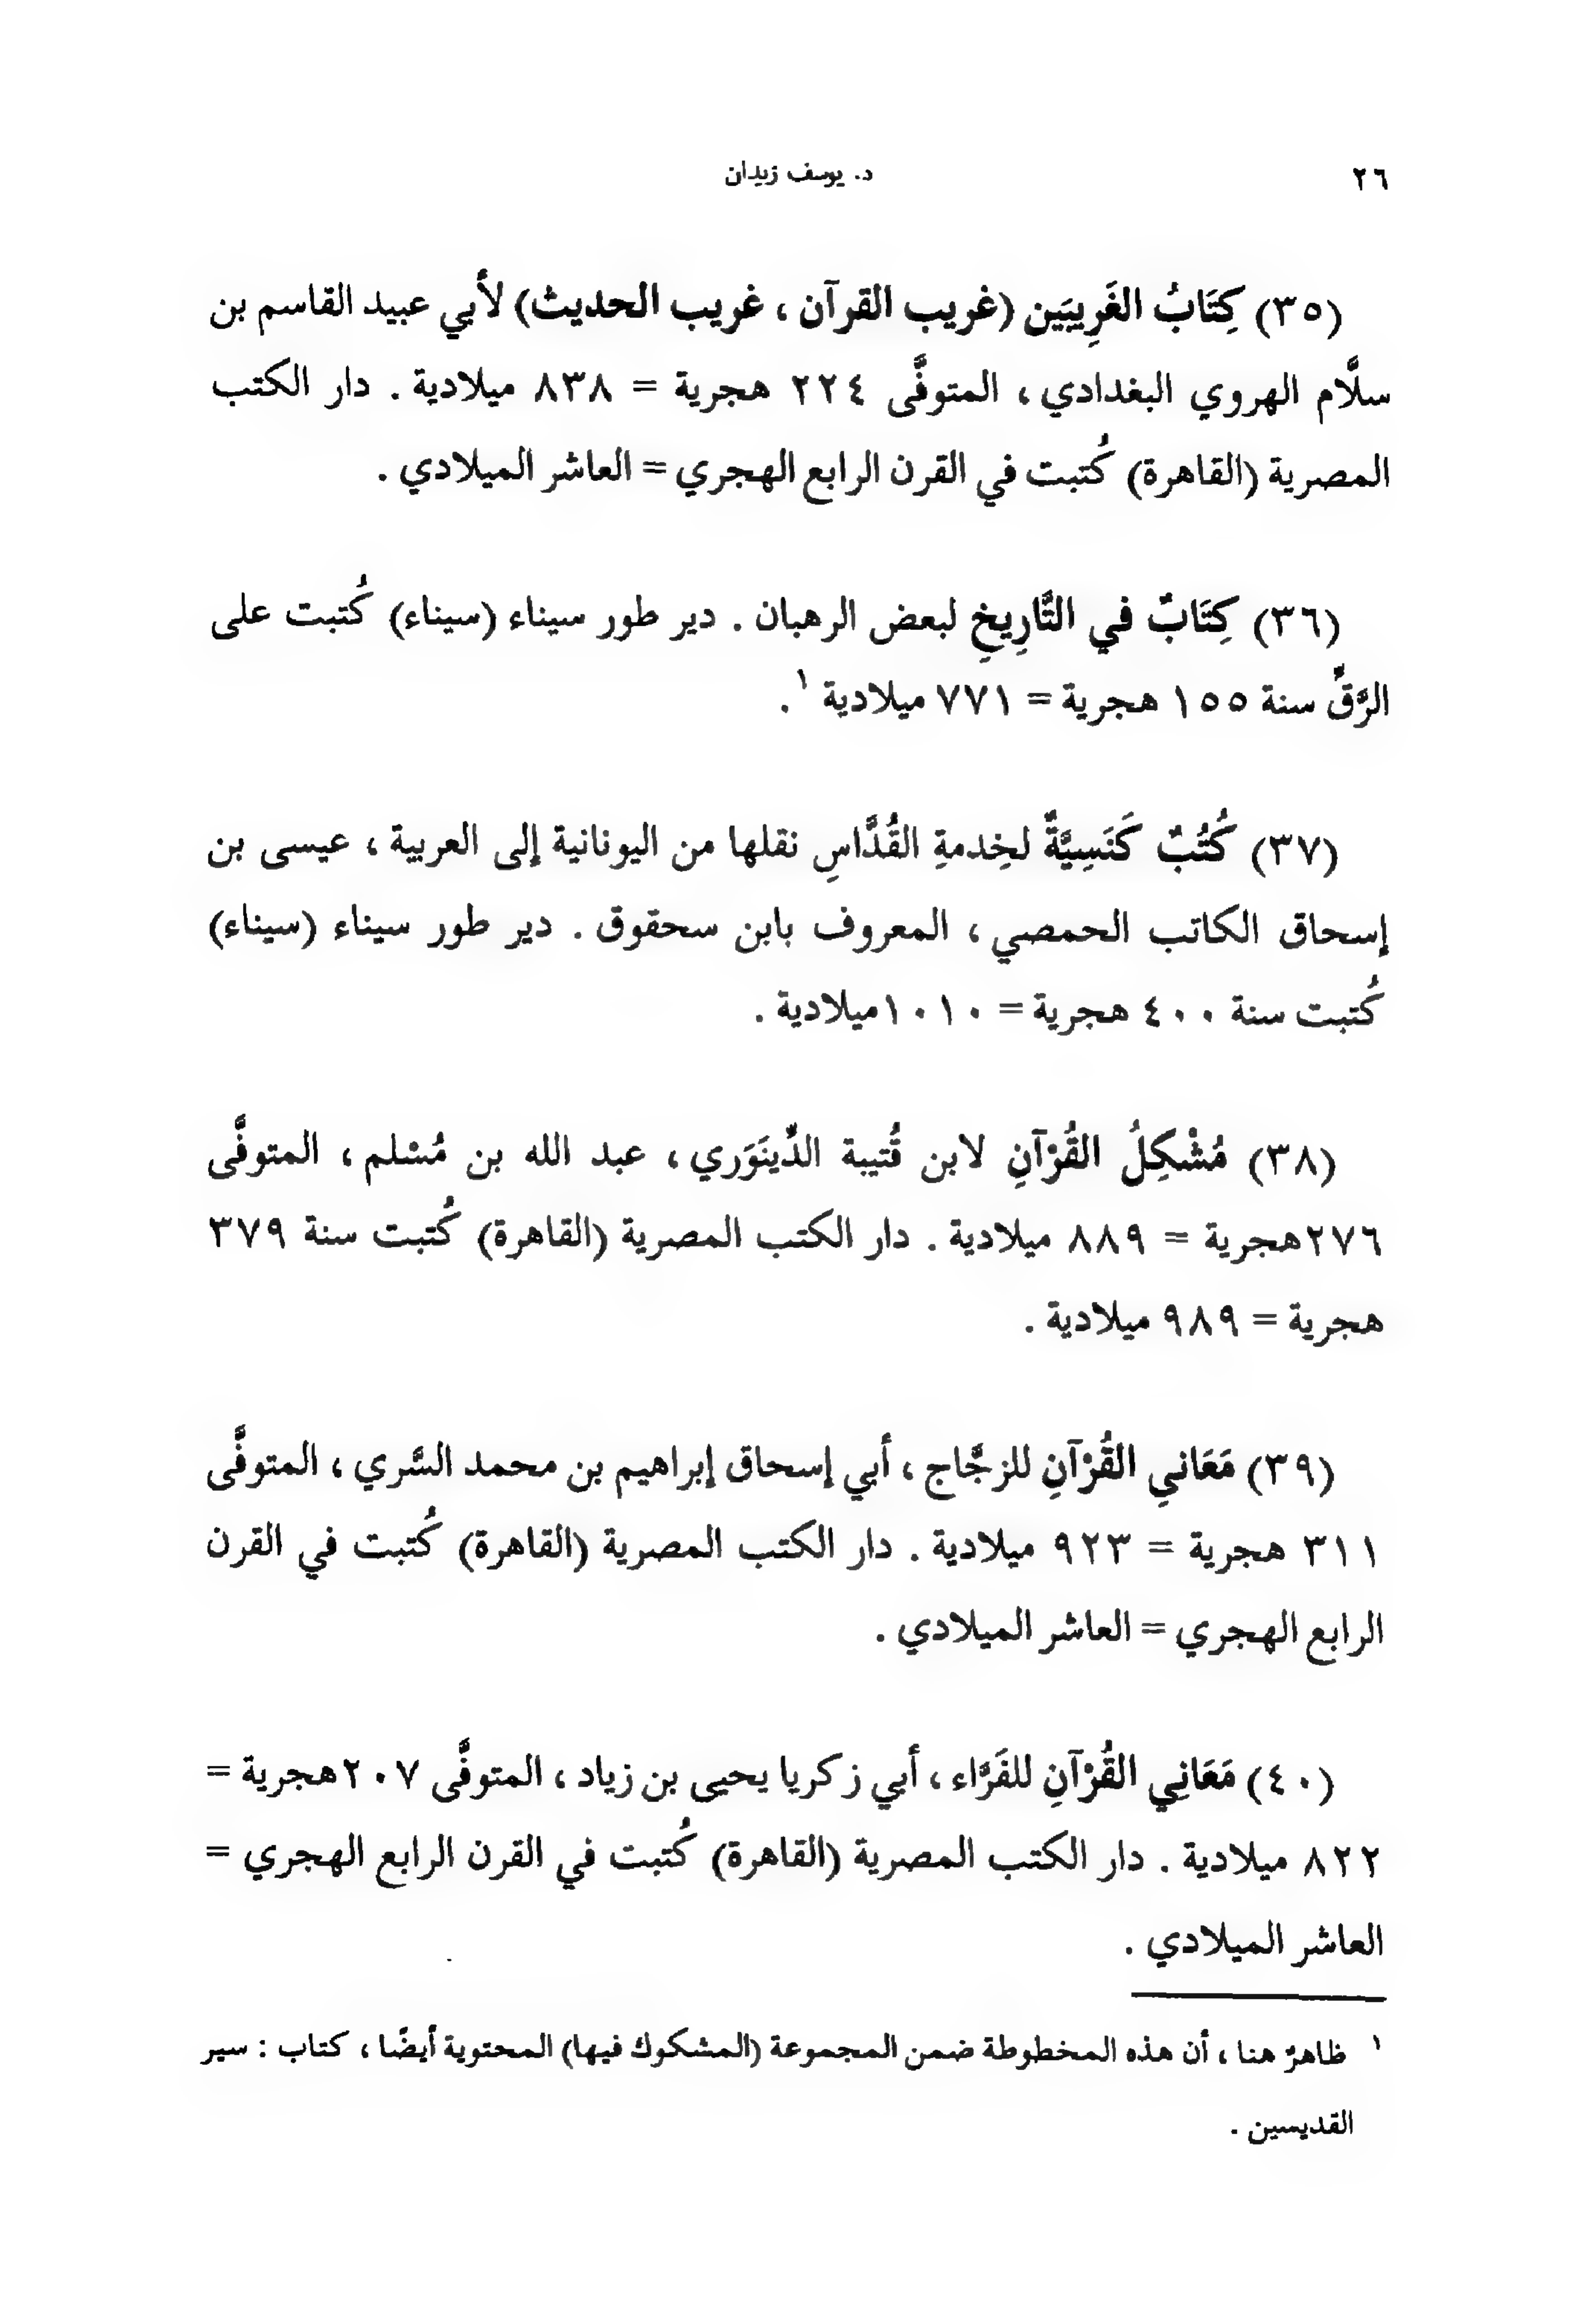 ٢٦
د. يوسف زيدان
(٣٥) كِتَابُ الغَرِيبَين (غريب القرآن ، غريب الحديث) لأبي عبيد القاسم بن
سلَّام الهروي البغدادي ، المتوفَّى ٢٢٤ هجرية = ٨٣٨ ميلادية . دار الكتب
المصرية (القاهرة) كُتبت في القرن الرابع الهجري = العاشر الميلادي .
(٣٦) كِتَابٌ في التَّارِيخِ لبعض الرهبان . دير طور سيناء (سيناء) كُتبت على
الرَّقِّ سنة ١٥٥ هجرية = ٧٧١ ميلادية ١ .
(٣٧) كُتُبٌ كَنَسِيَّةٌ لخِدمةِ القُدَّاسِ نقلها من اليونانية إلى العربية ، عيسى بن
إسحاق الكاتب الحمصي ، المعروف بابن سحقوق . دير طور سيناء (سيناء)
كُتبت سنة ٤٠٠ هجرية = ١٠١٠ميلادية .
(٣٨) مُشْكِلُ القُرْآنِ لابن قُتيبة الدِّينَوَري ، عبد الله بن مُسْلم ، المتوفَّى
٢٧٦هجرية = ٨٨٩ ميلادية . دار الكتب المصرية (القاهرة) كُتبت سنة ٣٧٩
هجرية = ٩٨٩ ميلادية .
(٣٩) مَعَاني القُرْآنِ للزجَّاج ، أبي إسحاق إبراهيم بن محمد السَّري ، المتوفَّى
٣١١ هجرية = ٩٢٣ ميلادية . دار الكتب المصرية (القاهرة) كُتبت في القرن
الرابع الهجري = العاشر الميلادي .
(٤٠) مَعَانِي القُرْآنِ للفَرَّاء ، أبي زكريا يحيى بن زياد ، المتوفَّى ٢٠٧هجرية =
٨٢٢ ميلادية . دار الكتب المصرية (القاهرة) كُتبت في القرن الرابع الهجري =
العاشر الميلادي .
١ ظاهرٌ هنا ، أن هذه المخطوطة ضمن المجموعة (المشكوك فيها) المحتوية أيضًا ، كتاب : سير
القديسين .